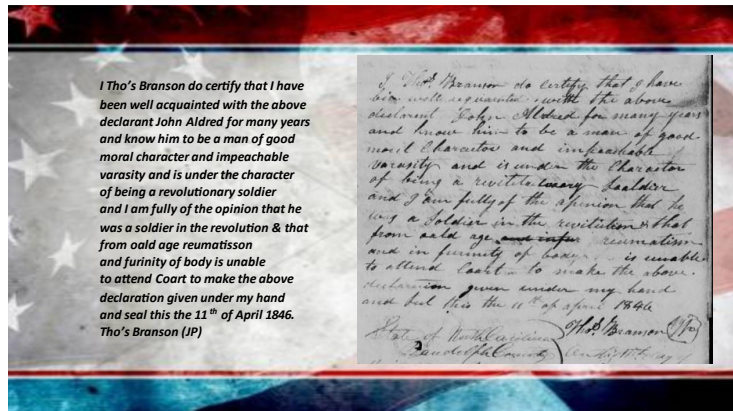 I Tho's Branson do certify that I have
been well acquainted with the above
declarant John Aldred for many years
and know him to be a man of good
moral character and impeachable
varasity and is under the character
of being a revolutionary soldier
and I am fully of the opinion that he
was a soldier in the revolution & that
from oald age reumatisson
and furinity of body is unable
to attend Coart to make the above
declaration given under my hand
and seal this the 11th of April 1846.
Tho's Branson (JP)
I Thos. Branson do certify that I have
been well acquainted with the above
declarent John Aldred for many years
and know him to be a man of good
morel Charcutor and impeachable
varasity and is under the Charactor
of being a Soaldier
and I am fully of the opinion that he
was a Soldier in the & that
from oald age reumatism
and in furmity of body is unable
to attend Coart to make the above
given under my hand
and this the 11th of april 1846
Thos. Branson
State of North Carolina
Randolph County